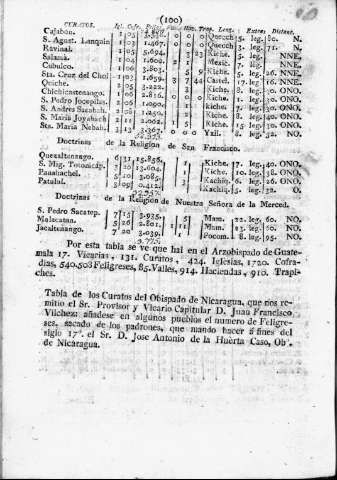 (100)
CURATOS. Igl. Cofr. Hac. Trap. Leng. Extres Distanc.
Cajabon. 1 05 0 0 0 Quecch 5. leg. 80. N.
S. Agust. Lanquin 1 03 1.467. 0 0 0 Quecch 3. leg. 71. N.
Rabinal. 1 05 5.694. 3 23 Kiche. 5. leg. NNE.
Salamá. 1 08 Mexic. 7. leg. NNE.
Cubulco. 1 06 3.803. Kiche. 5. leg. NE.
Sta. Cruz del Chol 1 03 1.659. 3 7 44 Castel. 16. leg. NNE.
Quiche. 2 05 2.222. Kiche. 5. leg. 26. NNE.
Chichicastenango. 1 06 2.816. 1 0 0 Kiche. 8. leg. ONO.
S. Pedro Jocopilas. 1 06 1.090. Kiche. 1. leg. 30. ONO.
S. Andres Sacabah. 1 08 2.030. Kiche. 7. leg. ONO.
S. Maria Joyabach 2 11 2.062. 1 5 Kiche. 8. leg. 40. ONO.
Sta. Maria Nebah. 3 13 3.367. 0 0 0 Yxil. 8. leg. 52. NO.
Doctrinas de la Religion de San Francisco.
Quezaltenango. 6 31 15.856. Kiche. 17. leg. 40. ONO.
S. Mig. Totonicáp. 3 20 13.604. 1 Kiche. 10. leg. 38. ONO.
Panahachel. 5 20 3.085. 1 Kachiq. 6. leg. 26. ONO.
Patulul. 3 09 0.412. Kachiq. 5. leg. 32. O.
Doctrinas de la Religion de Nuestra Señora de la Merced.
S. Pedro Sacatep. 7 15 3.925. 5 Mam. 22. leg. 60. NO.
Malacatan. 5 26 2.801. 1 11 Mam. 23. leg. 60. NO.
Jacaltenango. 7 28 3.039. Pocom. 8. leg. 95. NO.
Por esta tabla se ve que hai en el Arzobispado de Guate-
mala 17. Vicarias, 131. Curatos, 424. Iglesias, 1720. Cofra-
dias, 540.508 Feligreses, 85. Valles, 914. Haciendas, 910. Trapi-
ches.
Tabla de los Curatos del Obispado de Nicaragua, que nos re-
mitio el Sr. Provisor y Vicario Capitular D. Juan Francisco
Vilchez: añadese en algunos pueblos el numero de Feligre-
ses, sacado de los padrones, que mando hacer á fines del
siglo 17º. el Sr. D. Jose Antonio de la Huerta Caso, Obº.
de Nicaragua.